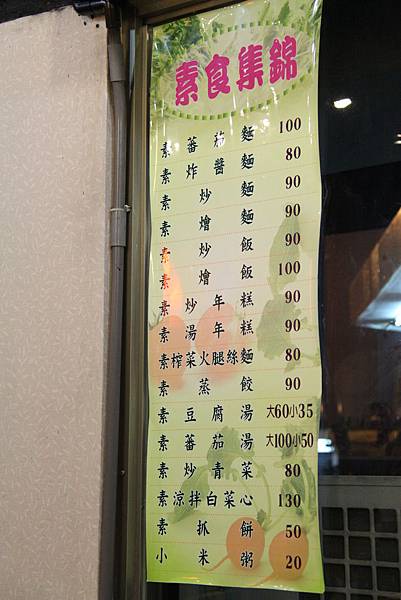 素食集錦
素蕃茄麵 100
素炸醬麵 80
素炒麵 90
素燴麵 90
素炒飯 90
素燴飯 100
素炒年糕 90
素湯年糕 90
素榨菜火腿絲麵 80
素蒸餃 90
素豆腐湯 大60小35
素蕃茄湯 大100小50
素炒青菜 80
素涼拌白菜心 130
素抓餅 50
小米粥 20